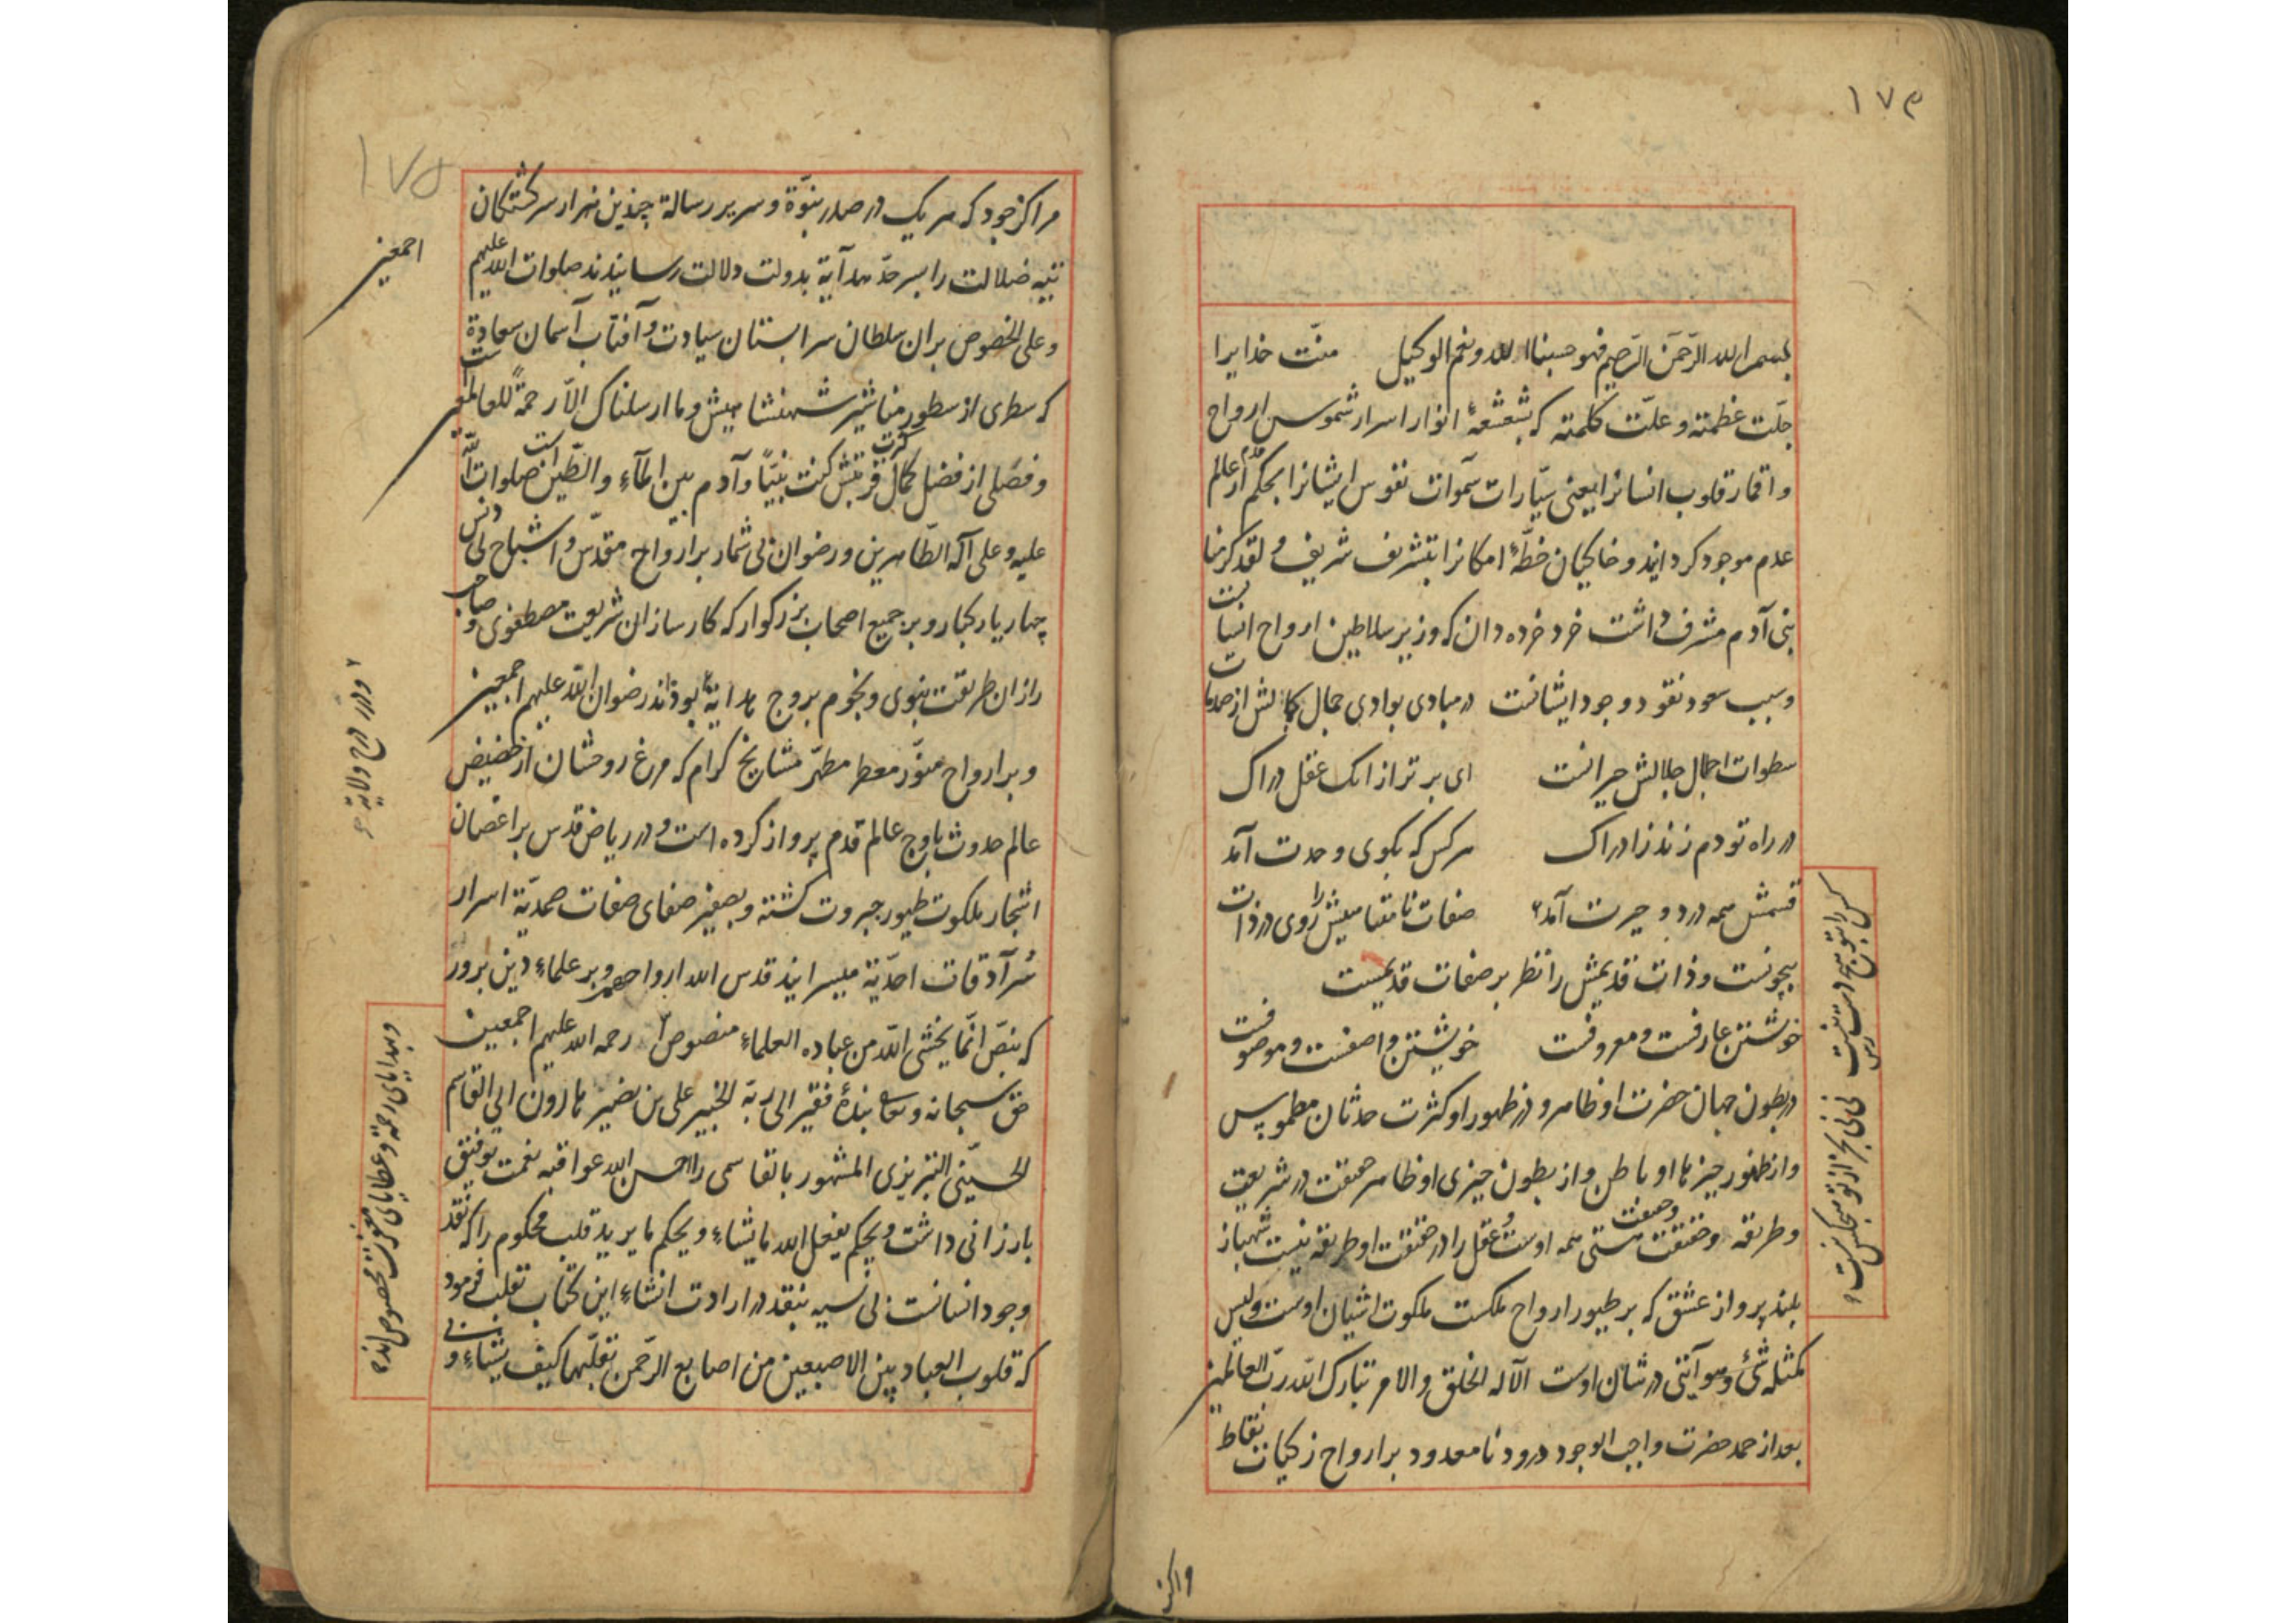 ۱۷۴
بسم الله الرّحمن الرّحیم فهو حسبنا الله و نعم الوکیل منّت خدایرا
جلّت عظمته و علّت کلمته که بشعشعهٔ انوار اسرار شموس ارواح
و اقمار قلوب انسانرا یعنی سیّارات سموات نفوس ایشانرا بحکم از عالم
عدم موجود کردانید و خاکیان خطّهٔ امکانرا بتشریف شریف و لقد کرمنا
بنی آدم مشرف داشت خرد خرده دان که وزیر سلاطین ارواح انسیانست
و سبب سعود نقود وجود ایشانست در مبادی بوادی جمال کمالش از صدمات
سطوات اجمال جلالش حیرانست ای برتر از انک عقل دراک
در راه تو دم زند ز ادراک هر کس که بکوی وحدت آمد
قسمش همه درد و حیرت آمد صفات نامتناهیش را روی در ذات
بیچونست و ذات قدیمش را نظر بر صفات قدیمیست
خویشتن عارفست و معروفست خویشتن واصفست و موصوفست
در بطون جهان حضرت او ظاهر و در ظهور او کثرت حدثان مطموس
و از ظهور چیزها او باطن و از بطون چیزی او ظاهر در شریعت
و طریقه و حقیقت هستی همه اوست و عقل را در حقیقت او طریقه نیست شهباز
بلند پرواز عشق که بر طیور ارواح ملکست ملکوت اشیان اوست و لیس
کمثله شیٔ و هو آیتی در شان اوست الآله الخلق و الامر تبارک الله ربّ العالمین
بعد از حمد حضرت واجب الوجود درود نامعدود بر ارواح زکیات نقاط
کس را بتو هیچ دست رس نیست
فی فی بجز از تو هیچکس نیست
مراکز
۱۷۵
مراکز جود که هر یک در صدر نبوّة و سریر رسالة چندین هزار سرکشتکان
تیه ضلالت را بسر حدّ هدآیة بدولت دلالت رسانیدند صلوات الله علیهم
اجمعین
و علی الخصوص بران سلطان سرابستان سیادت و آفتاب آسمان سعادة
که سطری از سطور مناشیر شهنشاهیش و ما ارسلناک الّا رحمةً للعالمین است
و فصلی از فضل کمال قربتش کنت نبیّاً و آدم بین المآء و الطّین است صلوات الله
علیه و علی آله الطّاهرین و رضوان بی شمار بر ارواح مقدّس و اشباح بی دنس
چهار یار کبار و بر جمیع اصحاب بزرکوار که کارسازان شریعت مصطفوی و صاحب
رازان طریقت نبوی و نجوم بروج هدایة بوده اند رضوان الله علیهم اجمعین
و درر درج ولایة
و بر ارواح منوّر معطر مطهّر مشایخ کرام که مرغ روحشان از حضیض
عالم حدوث باوج عالم قدم پرواز کرده است و در ریاض قدس بر اغصان
اشجار ملکوت طیور جبروت کشته و بصفیر صفای صفات صمدیّة اسرار
سُرآدقات احدّیة میسرایند قدس الله ارواحهم و بر علماءِ دین پرور
که بنصّ انّما یخشی اللّه من عباده العلماءِ منصوص رحمة الله علیهم اجمعین
و بهدایای رحمة و عطایای مغفرت مخصوص اند
حق سبحانه و تعالی بندهٔ فقیر الی ربّه الخبیر علی بن نصیر هارون ابی القاسم
الحسیّنی التبریزی المشهور بالقاسمی را احسن الله عواقبه نعمت توفیق
بارزانی داشت و بحکم یفعل الله ما یشاء و یحکم ما یرید قلب محکوم را که نقد
وجود انسانست بی نسیه بنقد در ارادت انشاءِ این کتاب تقلب فرمود
که قلوب العباد بین الاصبعین من اصابع الرّحمن تقلّبها کیف یشاء و